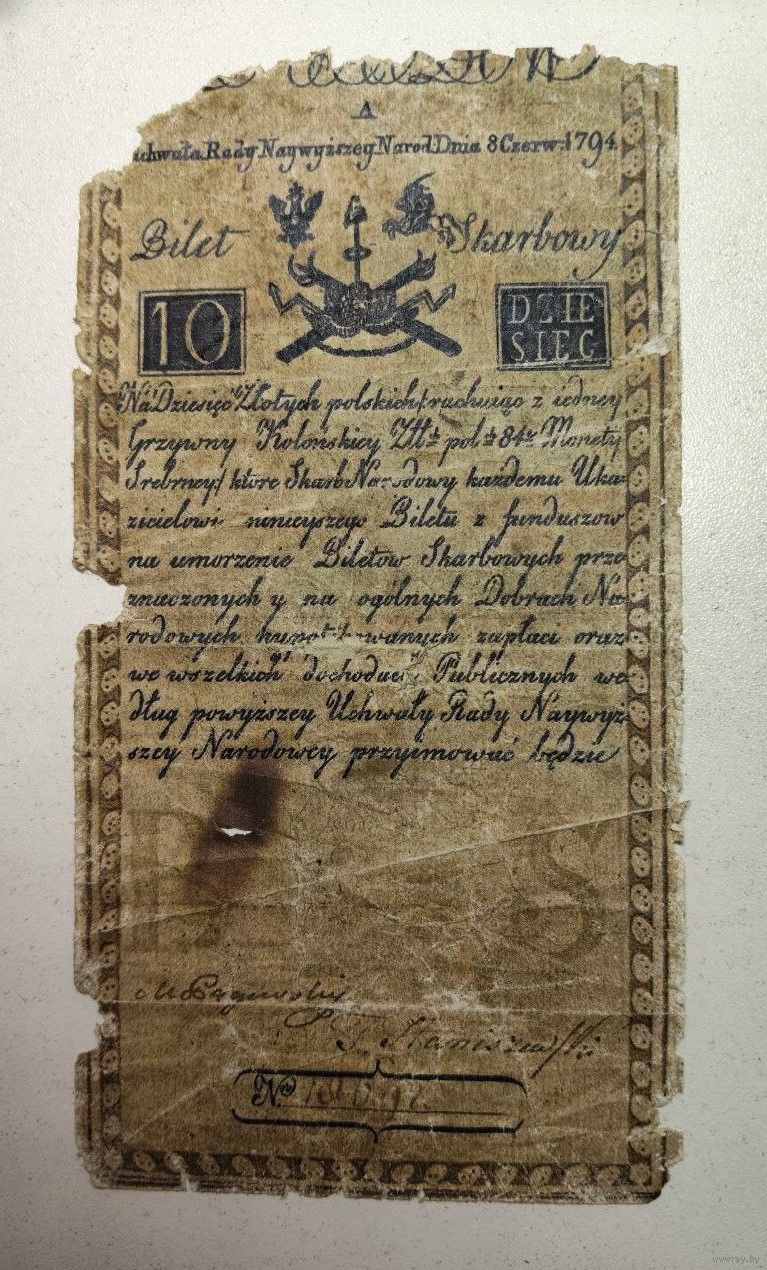 A
chwała Rady Naywyższey Narod: Dnia 8 Czerw: 1794
Bilet Skarbowy
10
DZIE
SIĘĆ
Na Dziesięć Złotych polskich / rachuiąc z iedney
Grzywny Kolońskiey Złł: pol: 84 2/4 Monety
Srebrney / które Skarb Narodowy każdemu Uka-
zicielowi ninieyszego Biletu z funduszow
na umorzenie Biletow Skarbowych prze-
znaczonych y na ogólnych Dobrach Na-
rodowych zapłaci oraz
we wszelkich dochodach Publicznych we-
dług powyższey Uchwały Rady Naywyż-
szey Narodowey przyimować będzie
P S
Staniszewski
Nro
www.ay.by